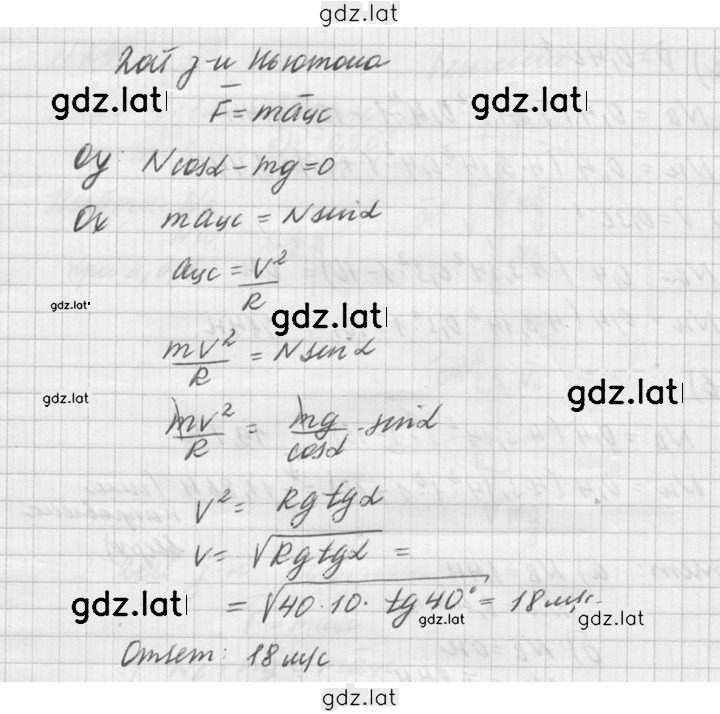 gdz.lat
2ой з-н Ньютона
gdz.lat gdz.lat
F̄ = māцс
Oy: Ncosα – mg = 0
Ox maцс = Nsinα
aцс = V²/R
gdz.lat gdz.lat
mV²/R = Nsinα
gdz.lat gdz.lat
mv²/R = mg/cosα · sinα
V² = Rgtgα
V = √Rgtgα =
gdz.lat = √40·10·tg40° = 18м/с
gdz.lat gdz.lat
Ответ: 18м/с
gdz.lat